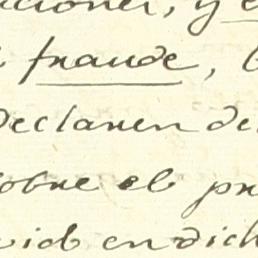 aciones, y e
fraude,
declaren de
sobre el pr
vil en dich